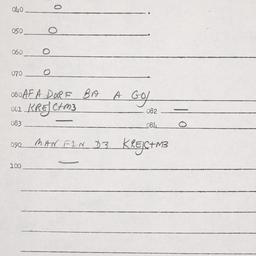 040 O .
050 O .
060 O
070 O .
080 AFA DORF BA A GO/
081 KREJC+M3 082 —
083 — 084 O
090 MAN FIN D3 KREJC+M3
100 —